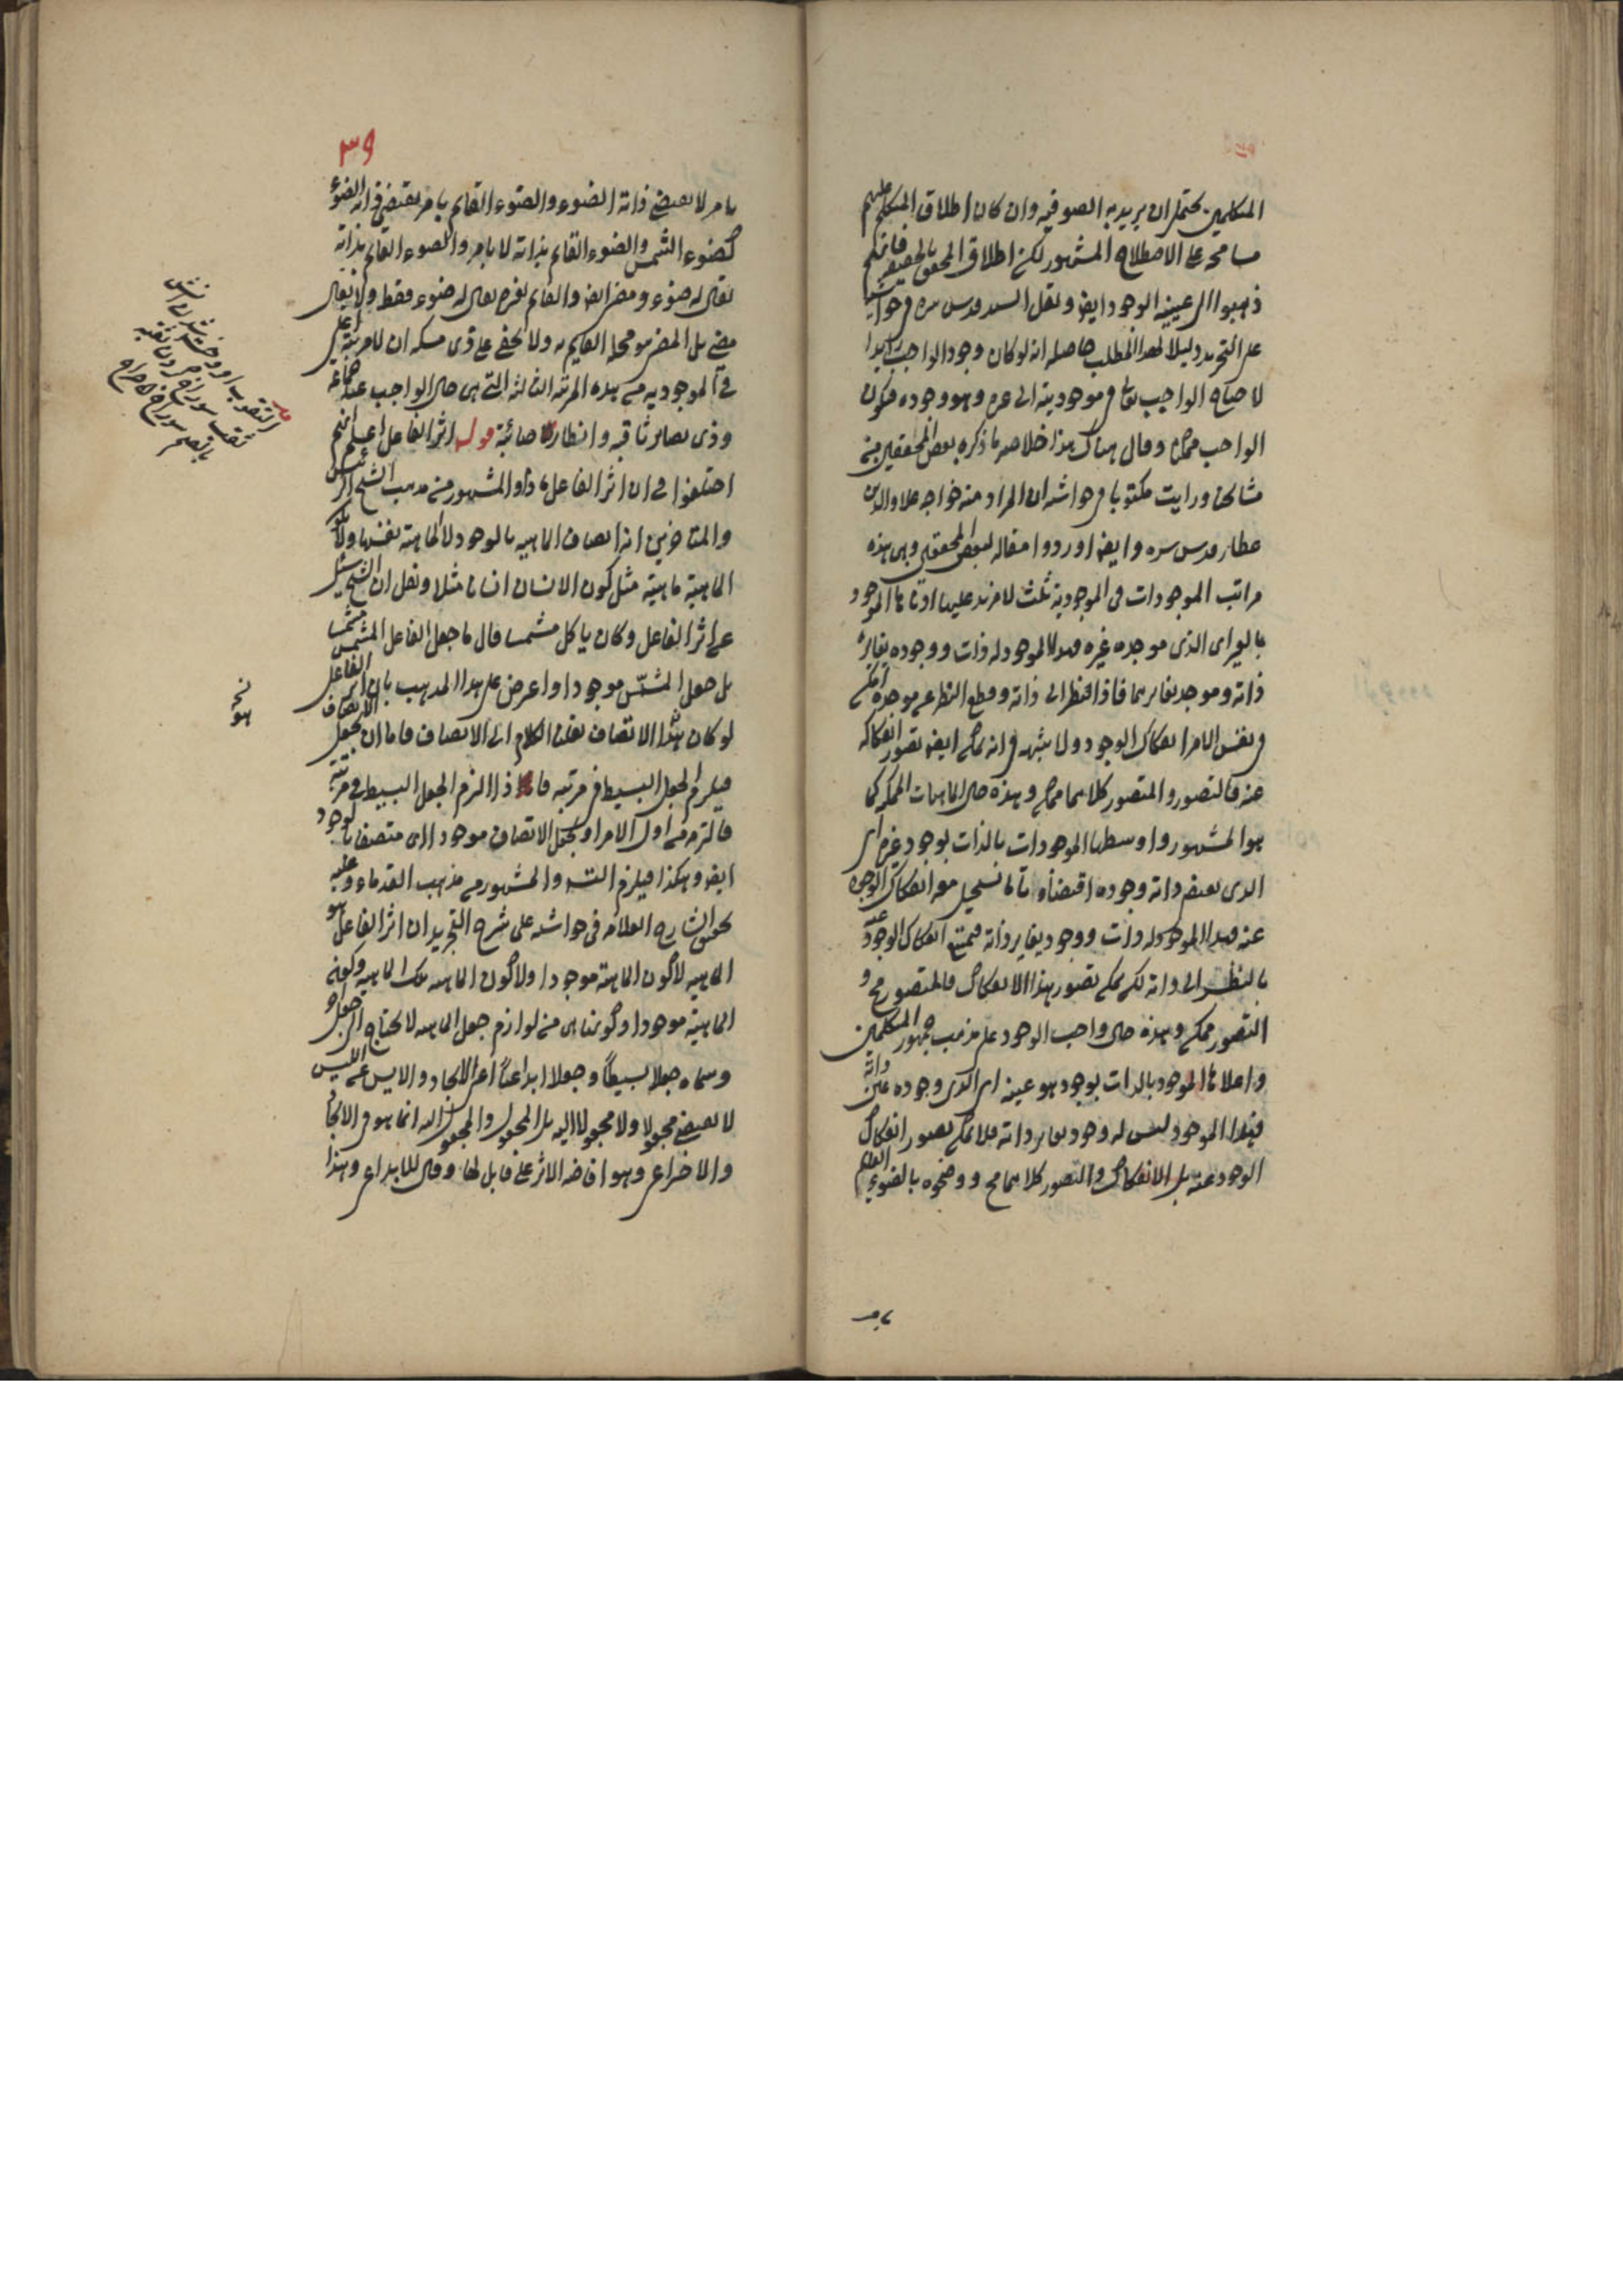 المتكلمين يحتمل ان يريد به الصوفية وان كان اطلاق المتكلم عليهم
مسامحة على الاصطلاح المشهور لكن اطلاق المحقق بالحقيقة فانهم
ذهبوا الى عينية الوجود ايضا ونقل السيد قدس سره في حواشيه
على التجريد دليلا لهذا المطلب حاصله انه لو كان وجود الواجب زايدا
لاحتاج الواجب تعالى في موجوديته الى غيره وهو وجوده فيكون
الواجب ممكنا وقال هناك هذا خلاصة ما ذكره بعض المحققين من
مشايخنا ورايت مكتوبا في حواشيه ان المراد منه خواجه علاء الدين
عطار قدس سره وايضا اوردوا مقالة لبعض المحققين وهي هذه
مراتب الموجودات في الموجودية ثلث لا مزيد عليها ادناها الموجود
بالغير اى الذى موجده غيره فهذا الموجود له ذات ووجود يغاير
ذاته وموجد يغايرهما فاذا نظر الى ذاته وقطع النظر عن موجده امكن
في نفس الامر انفكاك الوجود ولا شبهة في انه يمكن ايضا تصور انفكاكه
عنه فالتصور والمتصور كلاهما ممكن وهذه حال الماهيات الممكنة كما
هو المشهور واوسطها الموجودات بالذات بوجود غيره اى
الذى يقتضى ذاته وجوده اقتضاء تاما يستحيل معه انفكاك الوجود
عنه فهذا الموجود له ذات ووجود يغاير ذاته فيمتنع انفكاك الوجود عنه
بالنظر الى ذاته لكن يمكن تصور هذا الانفكاك فالمتصور مح و
التصور ممكن وهذه حال واجب الوجود على مذهب جمهور المتكلمين
واعلاها الموجود بالذات بوجود هو عينه اى الذى وجوده عين ذاته
فهذا الموجود ليس له وجود يغاير ذاته فلا يمكن تصور انفكاك
الوجود عنه بل الانفكاك والتصور كلاهما مح ووضحوه بالضوء القايم
بامر
٣٩
بامر لا يقتضى ذاته الضوء والضوء القايم بامر يقتضى ذاته الضوء
كضوء الشمس والضوء القايم بذاته لا بامر والضوء القايم بذاته
يقال له ضوء ومضئ ايضا والقايم بغيره يقال له ضوء فقط ولا يقال
مضئ بل المضئ هو محله القايم به ولا يخفى على ذى مسكة ان لا مرتبة اعلى
في الموجودية من هذه المرتبة الثالثة التى هى حال الواجب عند جماعة
وذى بصاير ثاقبة وانظار صائبة قوله اثر الفاعل اعلم انهم
اختلفوا في ان اثر الفاعل ماذا والمشهور من مذهب الشيخ الرئيس
والمتاخرين انه اتصاف الماهية بالوجود لا الماهية نفسها ولا كون
الماهية ماهية مثل كون الانسان انسانا مثلا ونقل ان الشيخ سئل
عن اثر الفاعل وكان ياكل مشمشا قال ما جعل الفاعل المشمش مشمشا
بل جعل المشمش موجودا واعرض على هذا المذهب بان اثر الفاعل
لو كان هذا الاتصاف نقلنا الكلام الى الاتصاف فاما ان يجعل الاتصاف
فيلزم الجعل البسيط في مرتبة فاذا التزم الجعل البسيط في مرتبة
فالتزمه من اول الامر او يجعل الاتصاف موجودا اى متصفا بالوجود
ايضا وهكذا فيلزم التسلسل والمشهور من مذهب القدماء وعليه
المحقق الشارح العلامة في حواشيه على شرح التجريد ان اثر الفاعل هو
الماهية لا كون الماهية موجودا ولا كون الماهية تلك الماهية وكون
الماهية موجودا وكونها هى من لوازم جعل الماهية لا يحتاج الى جعل اخر
وسماه جعلا بسيطا وجعلا ابداعيا اعنى الايجاد والايس عن الليس
لا يقتضى مجعولا ولا مجعولا اليه بل المجعول والمجعول اليه انما هو في الايجاد
والاختراعى وهو افاضة الاثر على قابل لها وقال للابداعى وهذا
نخ
هو